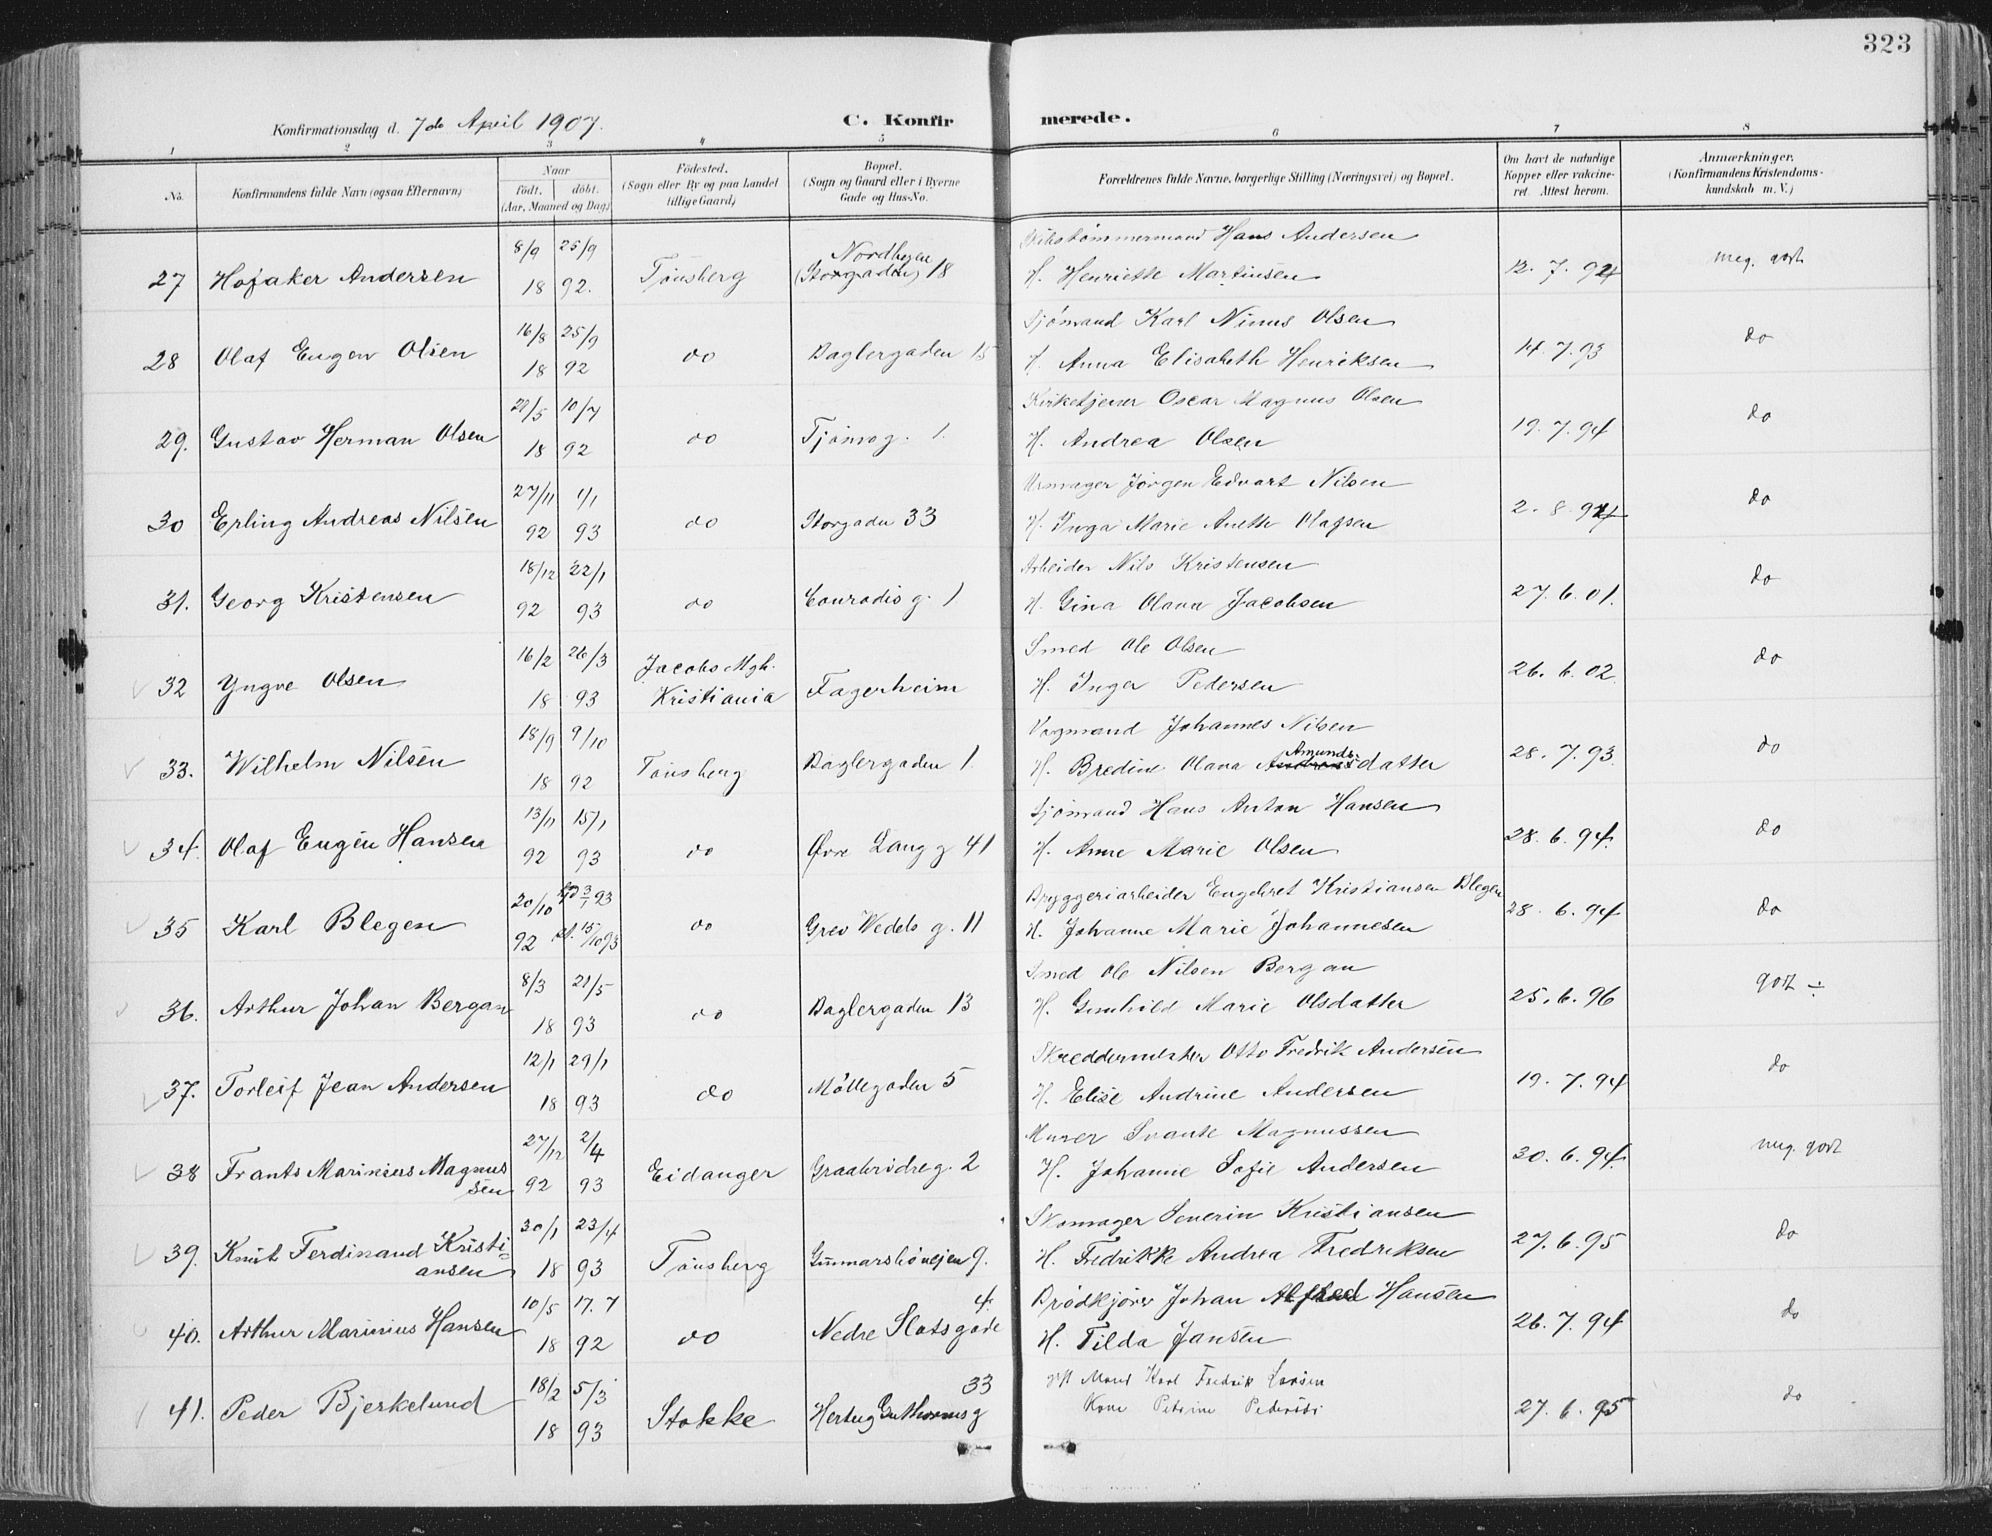 323
Konfirmationsdag d. 7de April 1907. C. Konfirmerede.
1 2 3 4 5 6 7 8
No. Konfirmandens fulde Navn (ogsaa Efternavn) Naar født. døbt. (Aar, Maaned og Dag) Fødested. (Sogn eller By og paa Landet tillige Gaard) Bopæl. (Sogn og Gaard eller i Byerne Gade og Hus-No. Forældrenes fulde Navne, borgerlige Stilling (Næringsvei) og Bopæl. Om havt de naturlige Kopper eller vakcineret. Attest herom. Anmærkninger. (Konfirmandens Kristendomskundskab m. V.)
8/9 25/9 Nordbyen Hans Andersen
27 Andersen 18 92. Tønsberg (Storgaden) 18 H. Henriette Martinsen 12. 7. 94 meg. godt
16/8 25/9 Sjømand Karl Ninus Olsen
28 Olaf Eugen Olsen 18 92 do Baglergaden 15 H. Anna Elisabeth Henriksen 14. 7. 93 do
21/5 10/7 Kirketjener Oscar Magnus Olsen
29. Gustav Herman Olsen 18 92 do Tjømeg. 1. H. Andrea Olsen 19. 7. 94 do
27/11 1/1 Urmager Jørgen Edvart Nilsen
30 Erling Andreas Nilsen 92 93 do Storgaden 33 H. Inga Marie Anette Olafsen 2. 8. 94 do
18/12 22/1 Arbeider Nils Kristensen
31. Georg Kristensen 92 93 do Conradis g. 1 H. Gina Olava Jacobsen 27. 6. 01. do
16/2 26/3 Jacobs Mgh. Smed Ole Olsen
32 Yngve Olsen 18 93 Kristiania Fagerheim H. Inger Pedersen 26. 6. 02. do
18/9 9/10 Vognmand Johannes Nilsen
33. Wilhelm Nilsen 18 92 Tønsberg Baglergaden 1 H. Bredine Olava Amundsdatter 28. 7. 93. do
13/11 15/1 Sjømand Hans Anton Hansen
34. Olaf Eugen Hansen 92 93 do Øvre Lang g 41 H. Anne Marie Olsen 28. 6. 94. do
20/10 3/1 93 Bryggeriarbeider Engebret Kristiansen Blegen
35 Karl Blegen 92 15/10 93 do Grev Wedels g. 11 H. Johanne Marie Johannesen 28. 6. 94 do
8/3 21/5 Smed Ole Nilsen Bergan
36. Arthur Johan Bergan 18 93 do Baglergaden 13 H. Gunhild Marie Olsdatter 25. 6. 96 godt ÷
12/1 29/1 Skreddermester Otto Fredrik Andersen
37. Torleif Jean Andersen 18 93 do Møllegaden 5 H. Elise Andrine Andersen 19. 7. 94 do
27/12 2/4 Murer Svante Magnussen
38 Frants Marinius Magnussen 92 93 Eidanger Graabrødreg. 2 H. Johanne Sofie Andersen 30. 6. 94. meg. godt
30/1 23/4 Skomager Severin Kristiansen
39. Knut Ferdinand Kristiansen 18 93 Tønsberg Gunnarsbøveien 9. H. Fredrikke Andrea Fredriksen 27. 6. 95 do
10/5 17. 7 4. Brødkjører Johan Alfred Hansen
40. Arthur Marinius Hansen 18 92 do Nedre Slotsgade H. Tilda Jansen 26. 7. 94 do
18/2 5/3 33 Karl Fredrik Larsen
41. Peder Bjerkelund 18 93 Stokke Hertug Guthorms g Kone Petrine Pedersdr 27. 6. 95 do